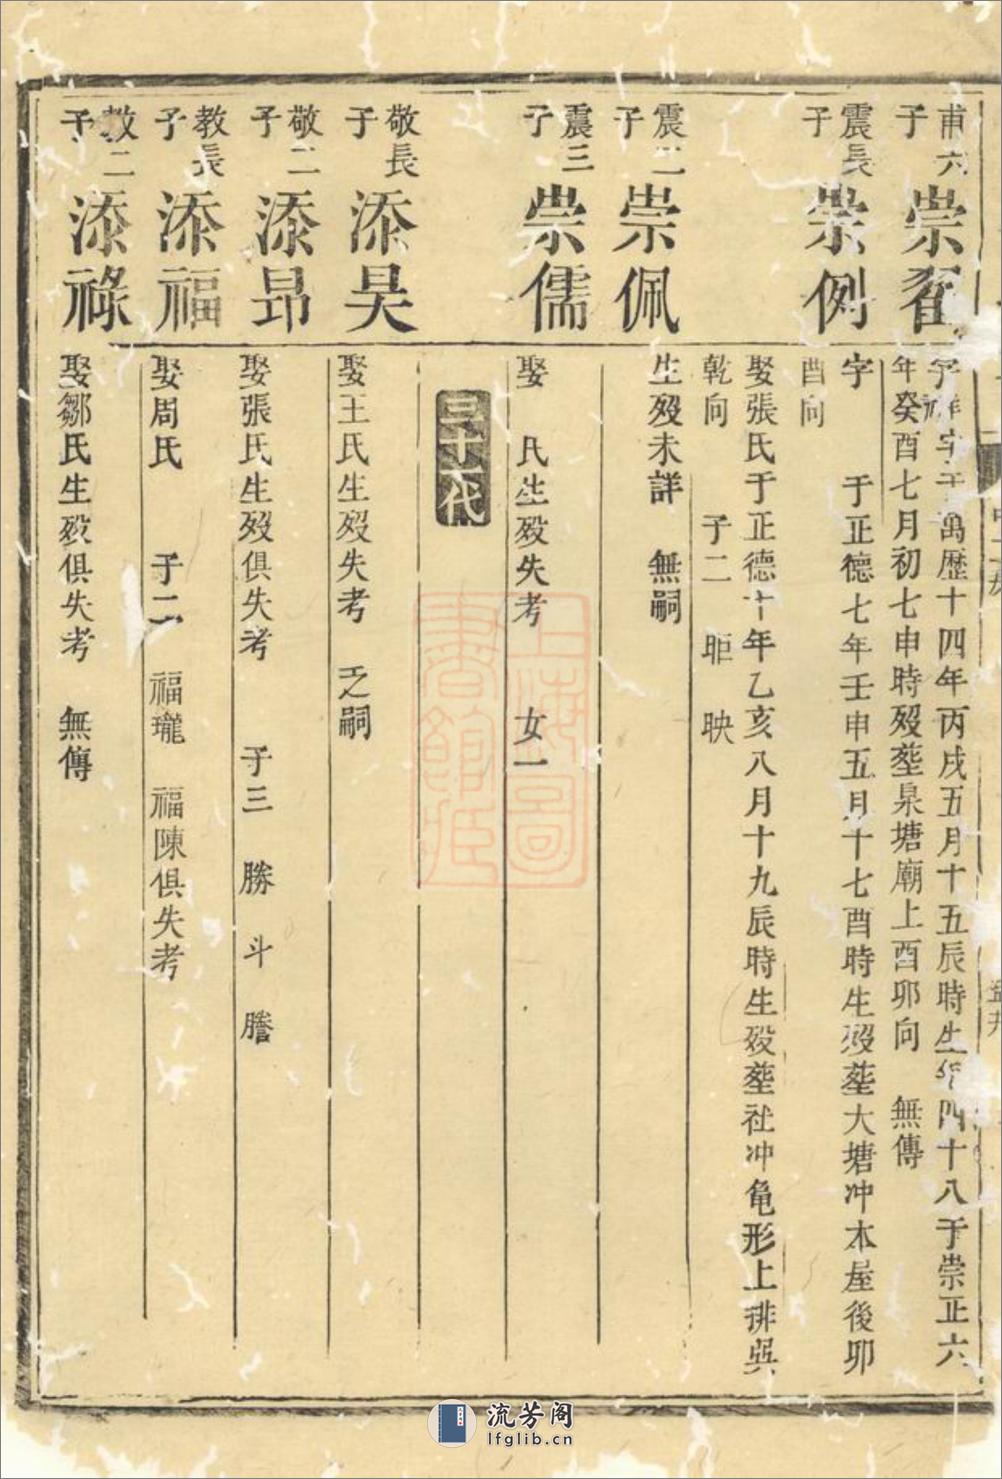 甫六子 崇雈
字祥字于萬歷十四年丙戌五月十五辰時生年四十八于崇正六
年癸酉七月初七申時歿塟泉塘廟上酉卯向 無傳
震長子 崇例
字 于正德七年壬申五月十七酉時生歿塟大塘冲本屋後卯
酉向
娶張氏于正德十年乙亥八月十九辰時生歿塟社冲龟形上排巽
乾向 子二 昛 映
震二子 崇佩
生歿未詳 無嗣
震三子 崇儒
娶 氏生歿失考 女一
三十代
敬長子 添昊
娶王氏生歿失考 乏嗣
敬二子 添昂
娶張氏生歿俱失考 子三 勝 斗 謄
教長子 添福
娶周氏 子二 福瓏 福陳俱失考
教二子 添祿
娶鄒氏生歿俱失考 無傳
上海圖
書館藏
流芳阁
lfglib.cn